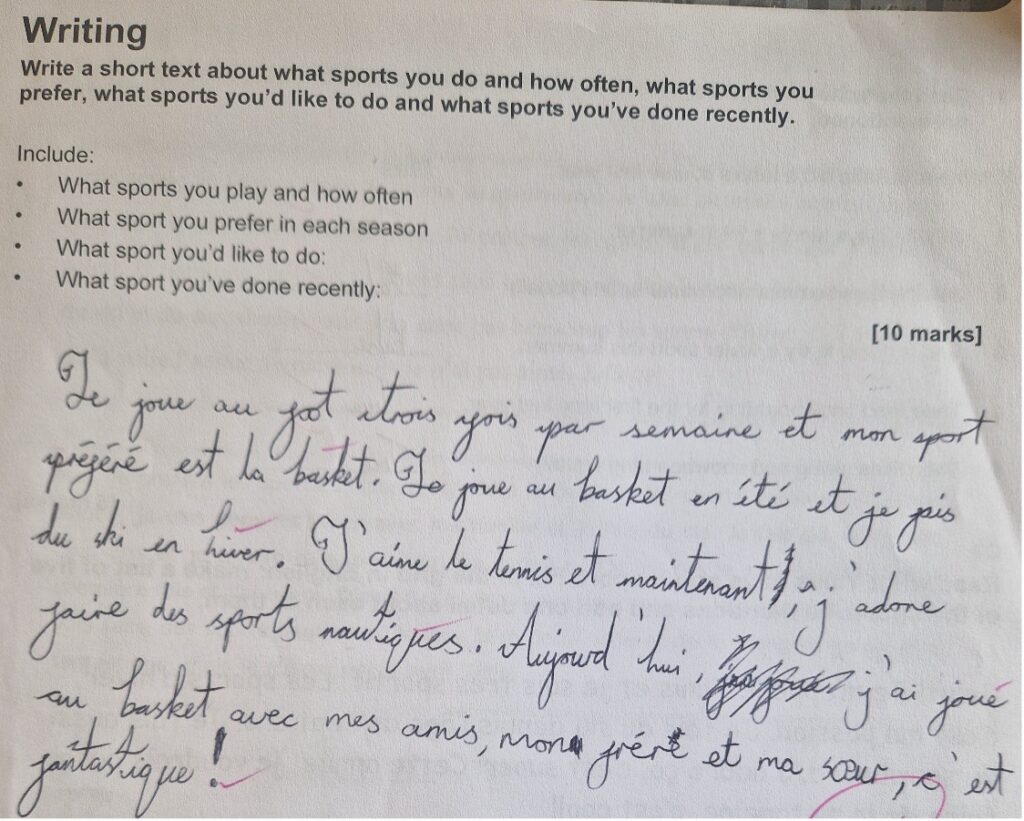 Writing
Write a short text about what sports you do and how often, what sports you
prefer, what sports you'd like to do and what sports you've done recently.
Include:
• What sports you play and how often
• What sport you prefer in each season
• What sport you'd like to do:
• What sport you've done recently:
[10 marks]
Je joue au foot trois fois par semaine et mon sport
préféré est la basket. Je joue au basket en été et je fais
du ski en hiver. J'aime le tennis et maintenant, j'adore
faire des sports nautiques. Aujourd'hui, j'ai joué
au basket avec mes amis, mon frère et ma sœur, c'est
fantastique !